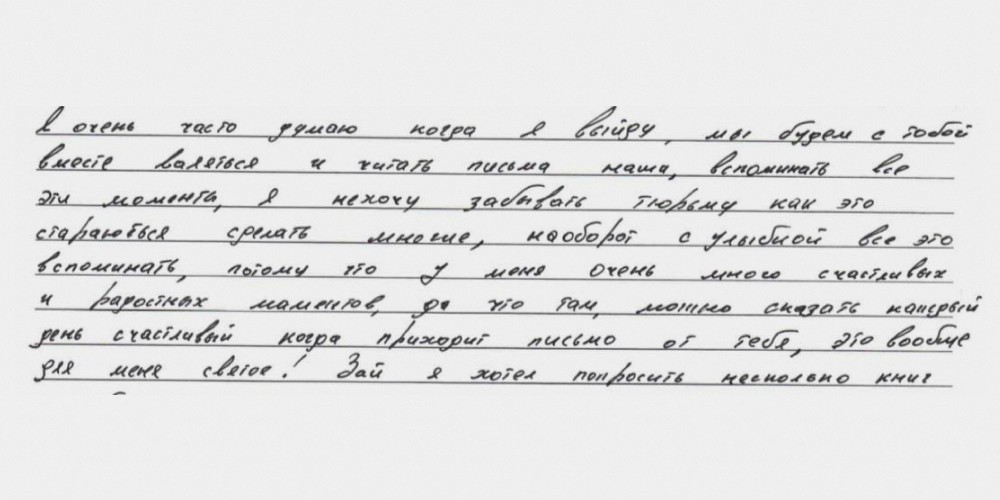 Я очень часто думаю когда я выйду, мы будем с тобой
вместе валяться и читать письма наши, вспоминать все
эти моменты, я нехочу забывать тюрьму как это
стараються сделать многие, наоборот с улыбкой все это
вспоминать, потому что у меня очень много счастливых
и радостных маментов, да что там, можно сказать каждый
день счастливый когда приходит письмо от тебя, это вообще
для меня святое! Зай я хотел попросить несколько книг